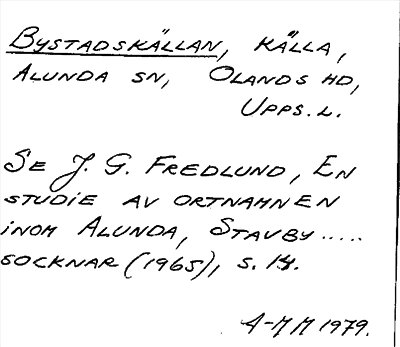 BYSTADSKÄLLAN, KÄLLA,
ALUNDA SN, OLANDS HD,
UPPS. L.
SE J. G. FREDLUND, EN
STUDIE AV ORTNAMNEN
INOM ALUNDA, STAVBY.....
SOCKNAR (1965), S. 14.
A-MM 1979.